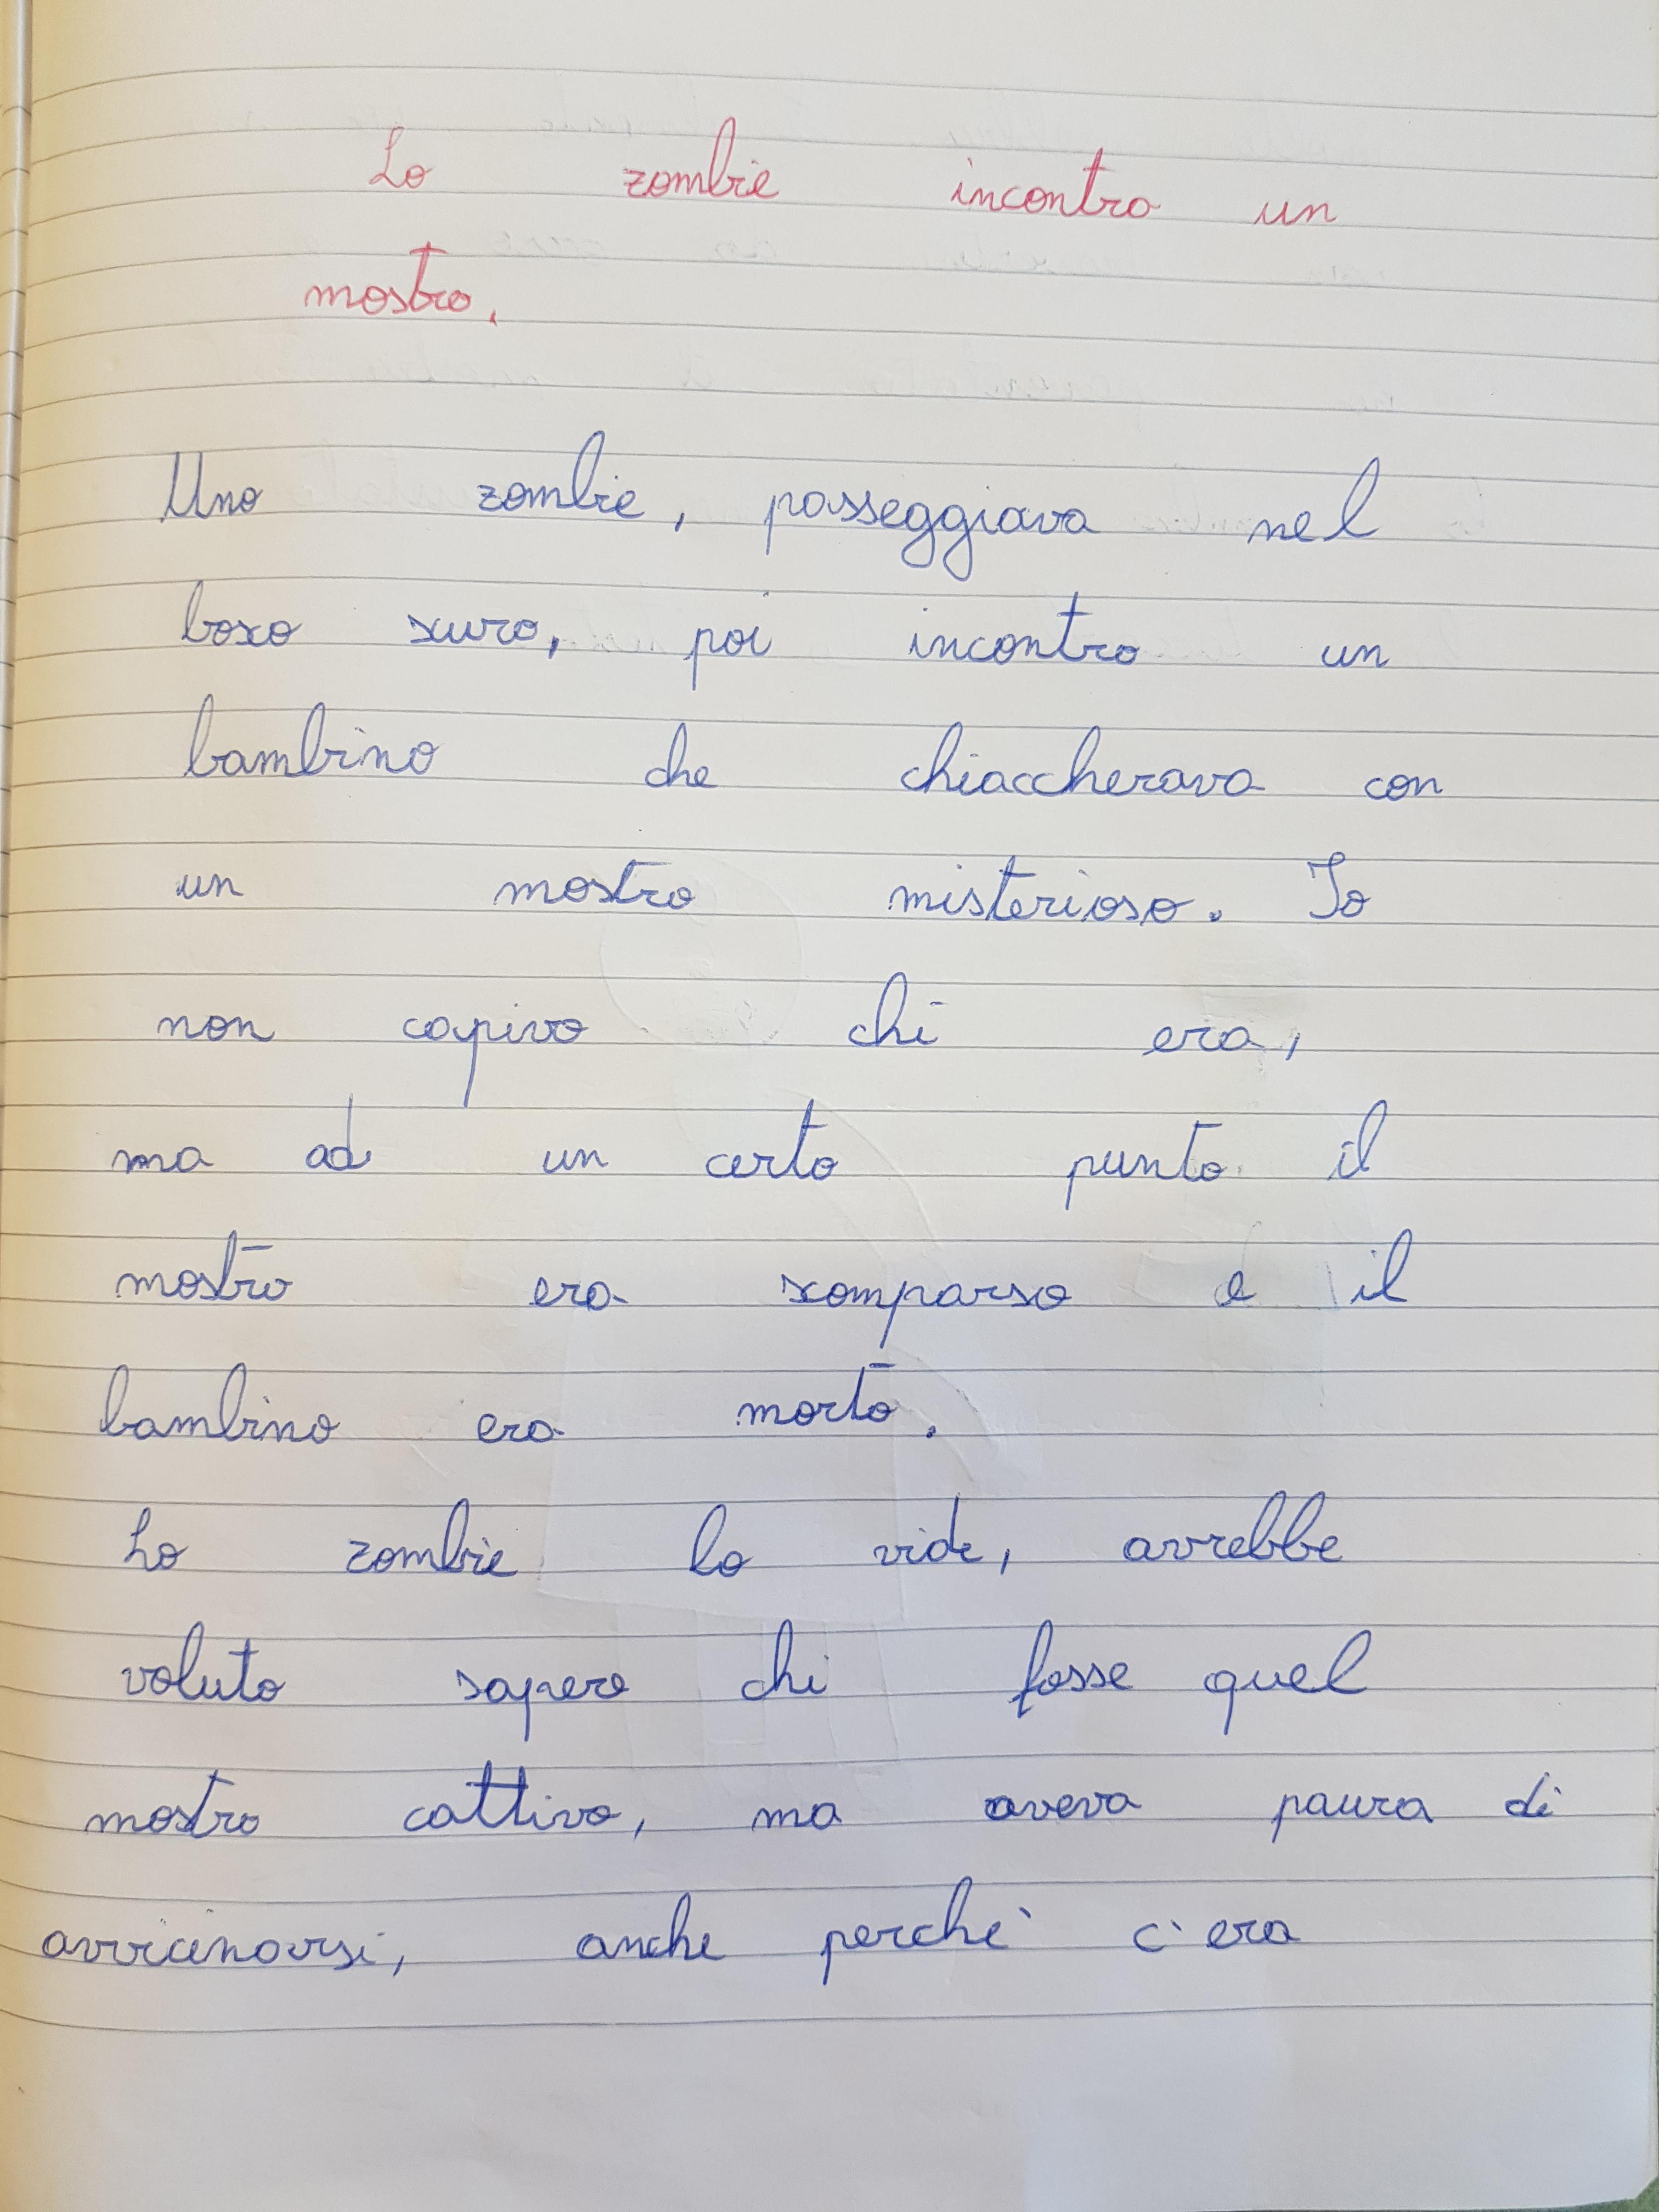 Lo zombie incontra un
mostro.
Uno zombie, passeggiava nel
bosco scuro, poi incontro un
bambino che chiaccherava con
un mostro misterioso. Io
non capivo chi era,
ma ad un certo punto il
mostro era scomparso e il
bambino era morto.
Lo zombie lo vide, avrebbe
voluto sapere chi fosse quel
mostro cattivo, ma aveva paura di
avvicinarsi, anche perchè c'era